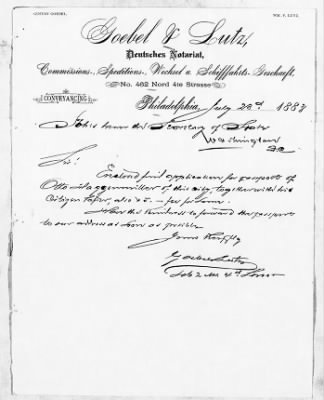 GUSTAV GOEBEL. WM. F. LUTZ.
Goebel & Lutz,
Deutsches Notariat,
Commissions-, Speditions-, Wechsel u. Schifffahrts-Geschäft,
No. 462 Nord 4te Strasse
CONVEYANCING
Philadelphia, July 23d 1883
To his honor the Secretary of State
Washington
Sir:
Enclosed find application for passport of
Otto of this city, together with his
Citizen Paper, also $5.- fee for same.
Have the kindness to forward the passport
to our address as soon as possible
Yours Respty
Goebel & Lutz
462 N 4th